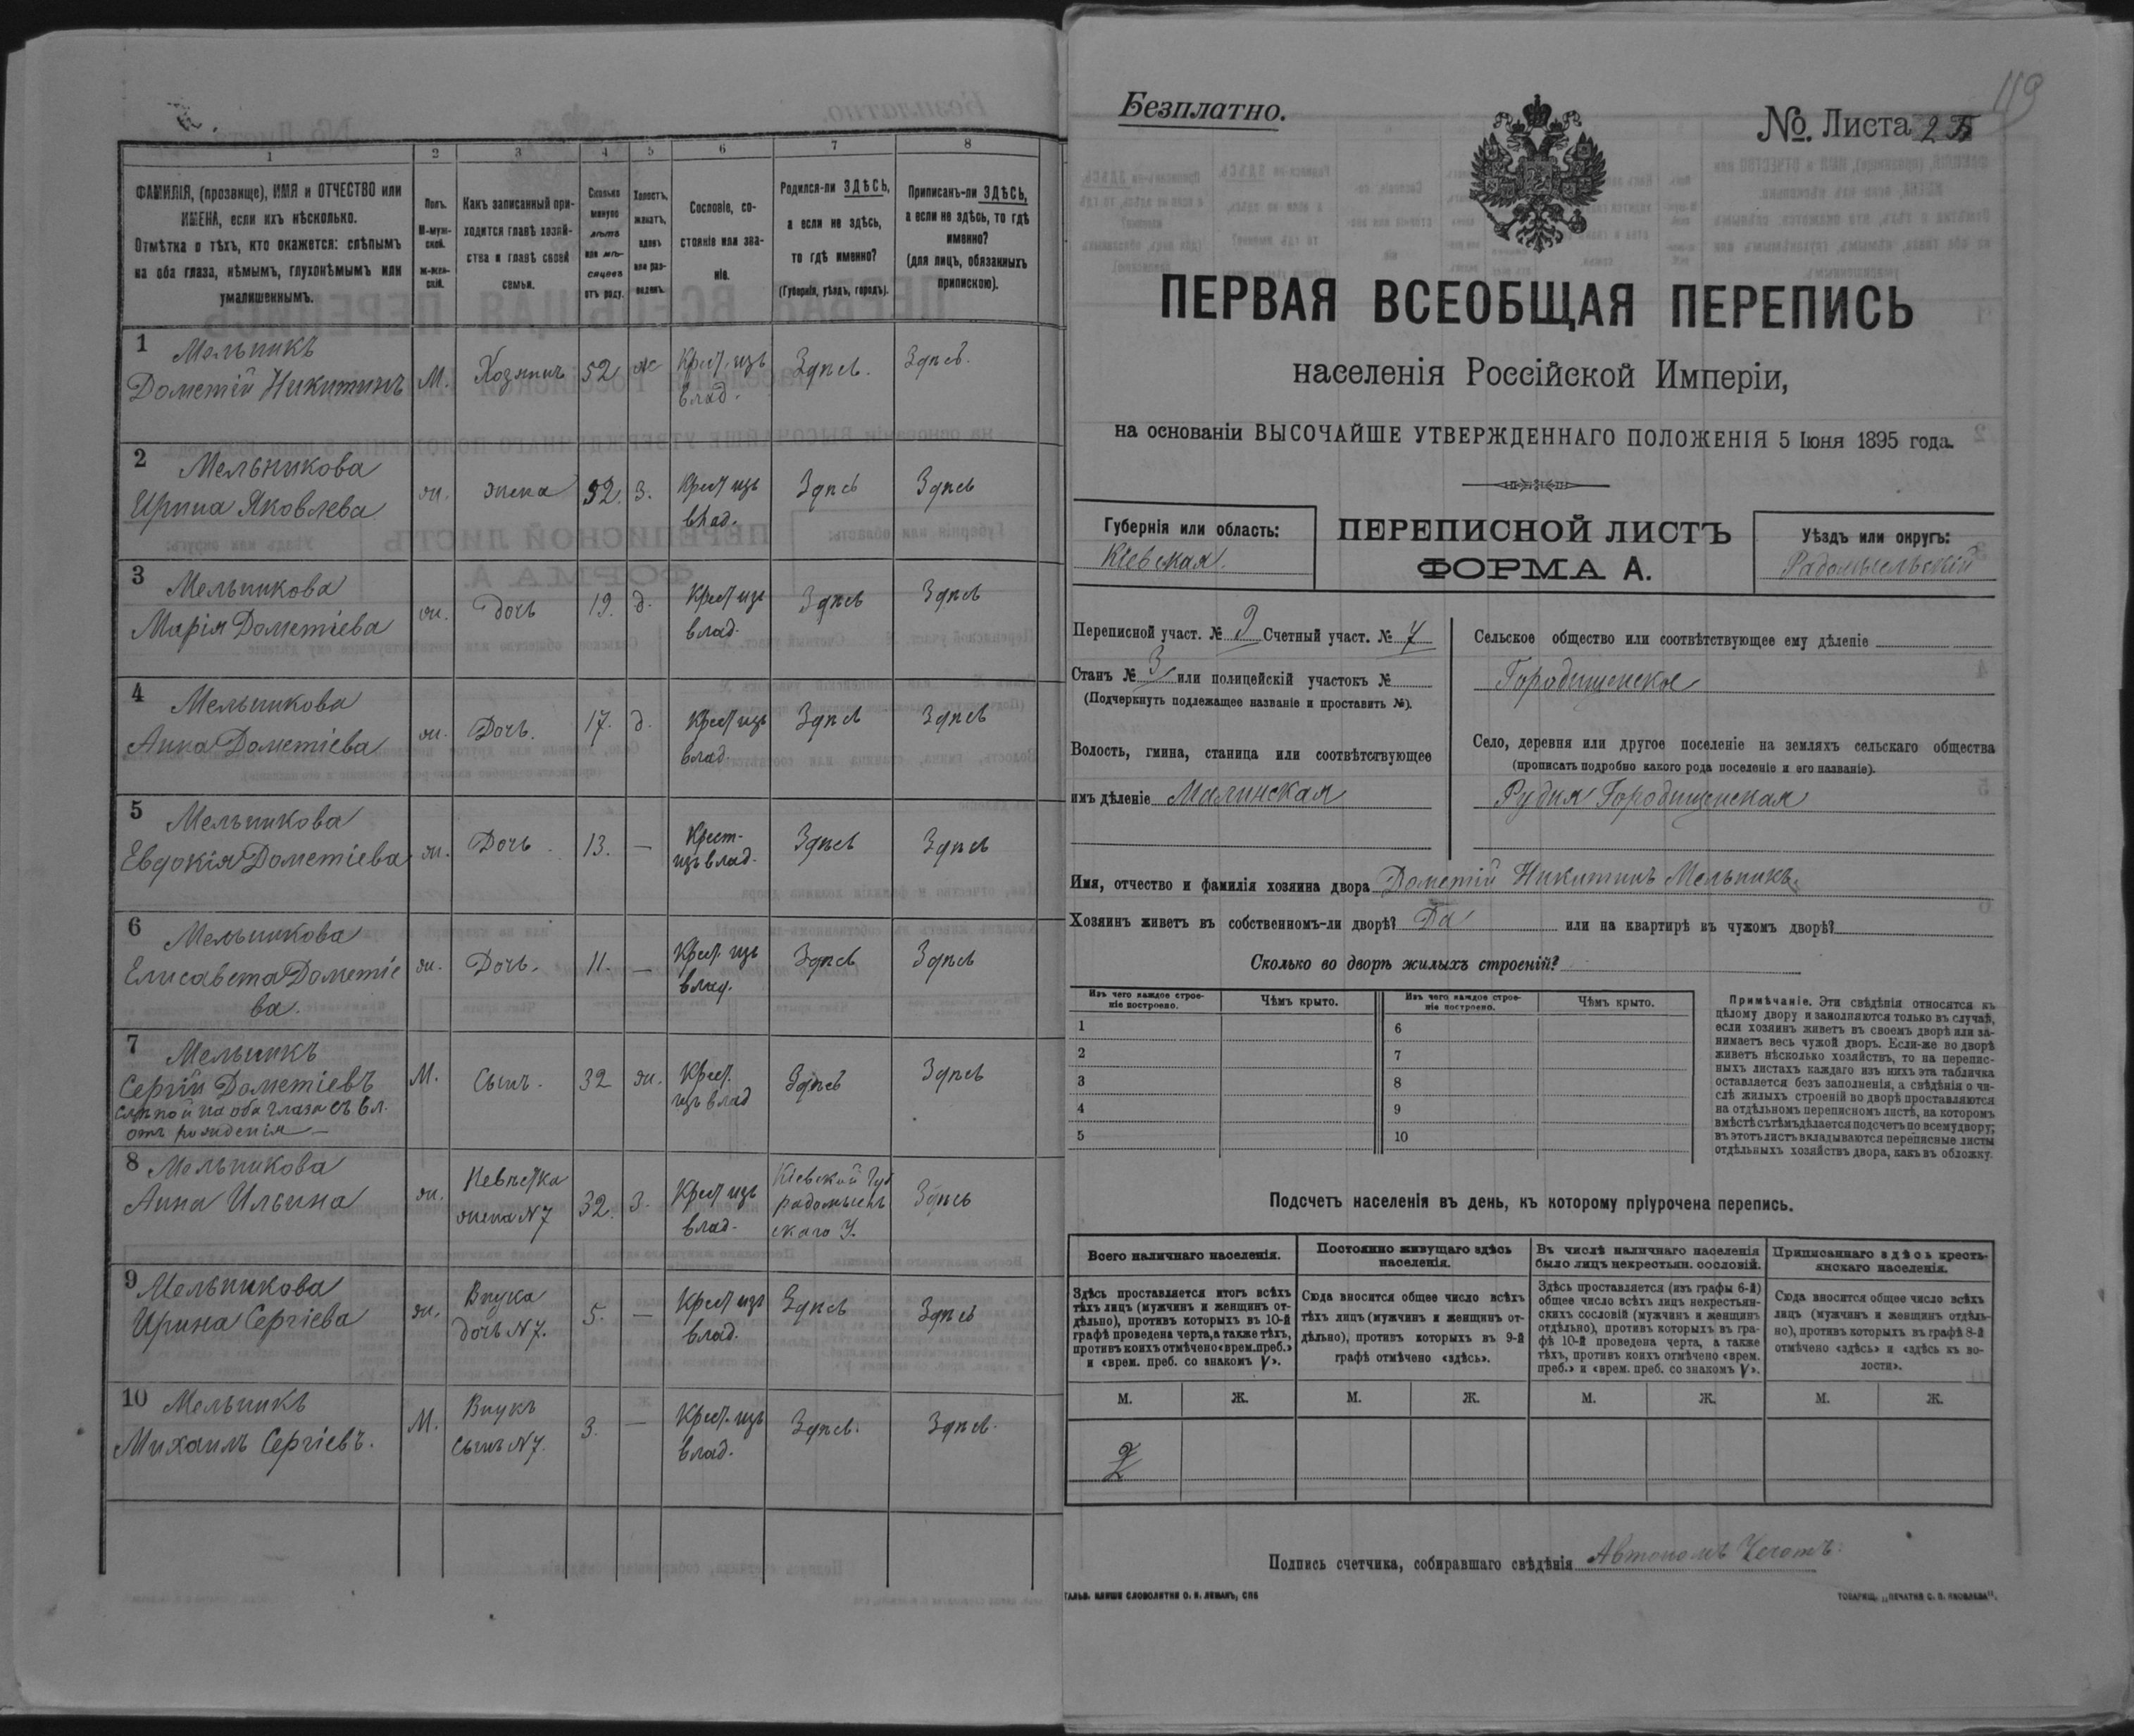 1
2
3
4
5
6
7
8
ФАМИЛІЯ, (прозвище), ИМЯ и ОТЧЕСТВО или
ИМЕНА, если ихъ нѣсколько.
Отмѣтка о тѣхъ, кто окажется: слѣпымъ
на оба глаза, нѣмымъ, глухонѣмымъ или
умалишеннымъ.
Полъ.
М-муж-
ской.
Ж-жен-
скій.
Какъ записанный при-
ходится главѣ хозяй-
ства и главѣ своей
семьи.
Сколько
минуло
лѣтъ
или мѣ-
сяцевъ
отъ роду.
Холостъ,
женатъ,
вдовъ
или раз-
веденъ.
Сословіе, со-
стояніе или зва-
ніе.
Родился-ли ЗДѢСЬ,
а если не здѣсь,
то гдѣ именно?
(Губернія, уѣздъ, городъ).
Приписанъ-ли ЗДѢСЬ,
а если не здѣсь, то гдѣ
именно?
(для лицъ, обязанныхъ
припискою).
1 Мельникъ
Дометій Никитинъ М. Хозяинъ 52 ж Крест. изъ влад. Здѣсь. Здѣсь.
2 Мельникова
Ирина Яковлева ж. жена 52. з. Крест изъ влад. Здѣсь Здѣсь
3 Мельникова
Марія Дометіева ж. дочь 19. д. Крест изъ влад. Здѣсь Здѣсь
4 Мельникова
Анна Дометіева ж. Дочь. 17. д. Крест изъ влад. Здѣсь Здѣсь
5 Мельникова
Евдокія Дометіева ж. Дочь. 13. — Крест- изъ влад. Здѣсь Здѣсь
6 Мельникова
Елисавета Дометіе ж. Дочь. 11. — Крест. изъ влад. Здѣсь Здѣсь
ва.
7 Мельникъ
Сергій Дометіевъ М. Сынъ. 32 ж. Крест. изъ влад Здѣсь Здѣсь
слѣпой на оба глаза съ 6 л.
отъ рожденія —
8 Мельникова
Анна Ильина ж. Невѣстка жена N 7 32. з. Крест изъ влад. Кіевской Губ радомысль скаго У. Здѣсь
9 Мельникова
Ирина Сергіева ж. Внука дочь N 7. 5. — Крест изъ влад. Здѣсь Здѣсь
10 Мельникъ
Михаилъ Сергіевъ. М. Внукъ сынъ N 7. 3. — Крест. изъ влад. Здѣсь. Здѣсь.
119
Безплатно.
№. Листа 2
ПЕРВАЯ ВСЕОБЩАЯ ПЕРЕПИСЬ
населенія Россійской Имперіи,
на основаніи ВЫСОЧАЙШЕ УТВЕРЖДЕННАГО ПОЛОЖЕНІЯ 5 Іюня 1895 года.
Губернія или область:
Кіевская
ПЕРЕПИСНОЙ ЛИСТЪ
ФОРМА А.
Уѣздъ или округъ:
Радомысльскій
Переписной участ. № 9 Счетный участ. № 7
Станъ № 3 или полицейскій участокъ №
(Подчеркнуть подлежащее названіе и проставить №).
Волость, гмина, станица или соотвѣтствующее
имъ дѣленіе Малинская
Сельское общество или соотвѣтствующее ему дѣленіе
Городищенское
Село, деревня или другое поселеніе на земляхъ сельскаго общества
(прописать подробно какого рода поселеніе и его названіе).
Рудня Городищенская
Имя, отчество и фамилія хозяина двора Дометій Никитинъ Мельникъ.
Хозяинъ живетъ въ собственномъ-ли дворѣ? Да или на квартирѣ въ чужомъ дворѣ?
Сколько во дворѣ жилыхъ строеній?
Изъ чего каждое строе-
ніе построено.
Чѣмъ крыто.
Изъ чего каждое строе-
ніе построено.
Чѣмъ крыто.
1 6
2 7
3 8
4 9
5 10
Примѣчаніе. Эти свѣдѣнія относятся къ
цѣлому двору и заполняются только въ случаѣ,
если хозяинъ живетъ въ своемъ дворѣ или за-
нимаетъ весь чужой дворъ. Если-же во дворѣ
живетъ нѣсколько хозяйствъ, то на перепис-
ныхъ листахъ каждаго изъ нихъ эта табличка
оставляется безъ заполненія, а свѣдѣнія о чи-
слѣ жилыхъ строеній во дворѣ проставляются
на отдѣльномъ переписномъ листѣ, на которомъ
вмѣстѣ съ тѣмъ дѣлается подсчетъ по всему двору;
въ этотъ листъ вкладываются переписные листы
отдѣльныхъ хозяйствъ двора, какъ въ обложку.
Подсчетъ населенія въ день, къ которому пріурочена перепись.
Всего наличнаго населенія.
Здѣсь проставляется итогъ всѣхъ
тѣхъ лицъ (мужчинъ и женщинъ от-
дѣльно), противъ которыхъ въ 10-й
графѣ проведена черта, а также тѣхъ,
противъ коихъ отмѣчено «врем. преб.»
и «врем. преб. со знакомъ V».
Постоянно живущаго здѣсь
населенія.
Сюда вносится общее число всѣхъ
тѣхъ лицъ (мужчинъ и женщинъ от-
дѣльно), противъ которыхъ въ 9-й
графѣ отмѣчено «здѣсь».
Въ числѣ наличнаго населенія
было лицъ некрестьян. сословій.
Здѣсь проставляется (изъ графы 6-й)
общее число всѣхъ лицъ некрестьян-
скихъ сословій (мужчинъ и женщинъ
отдѣльно), противъ которыхъ въ гра-
фѣ 10-й проведена черта, а также
тѣхъ, противъ коихъ отмѣчено «врем.
преб.» и «врем. преб. со знакомъ V».
Приписаннаго здѣсь кресть-
янскаго населенія.
Сюда вносится общее число всѣхъ
лицъ (мужчинъ и женщинъ отдѣль-
но), противъ которыхъ въ графѣ 8-й
отмѣчено «здѣсь» и «здѣсь къ во-
лости».
М. Ж. М. Ж. М. Ж. М. Ж.
2
Подпись счетчика, собиравшаго свѣдѣнія Автономъ
ГАЛЬВ. КЛИШЕ СЛОВОЛИТНИ О. И. ЛЕМАНЪ, СПБ
ТОВАРИЩ. „ПЕЧАТНЯ С. П. ЯКОВЛЕВА".